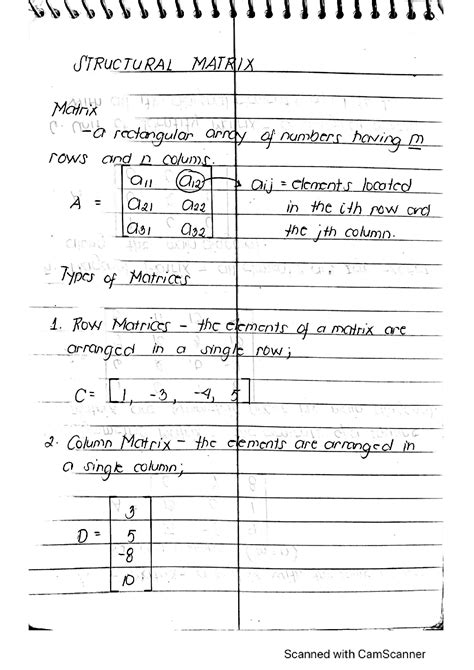 STRUCTURAL MATRIX
Matrix
-a rectangular array of numbers having m
rows and n colums.
a11 a12 → aij = elements located
A = a21 a22 in the ith row and
a31 a32 the jth column.
Types of Matrices
1. Row Matrices - the elements of a matrix are
arranged in a single row;
C = [1, -3, -4, 5]
2. Column Matrix - the elements are arranged in
a single column;
3
D = 5
-8
10
Scanned with CamScanner